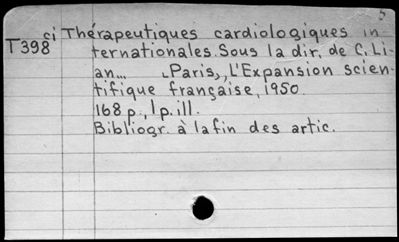 5
ci Thérapeutiques cardiologiques in
T398 ternationales. Sous la dir. de C. Li-
an... Paris, L'Expansion scien-
tifique française, 1950
168 p., 1 p. ill.
Bibliogr. à la fin des artic.